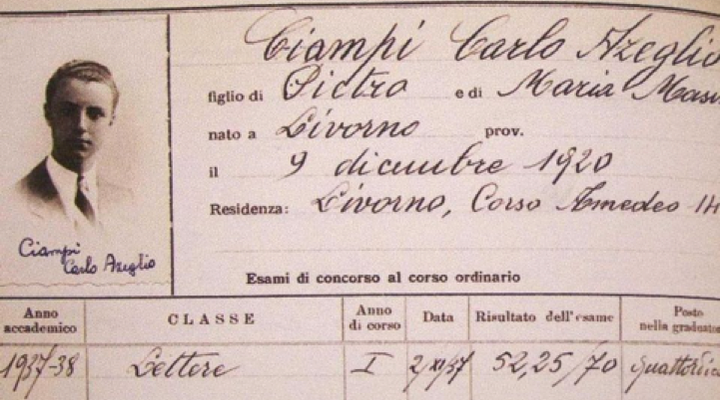 Ciampi Carlo Azeglio
figlio di Pietro e di Maria Masi
nato a Livorno prov.
il 9 dicembre 1920
Residenza: Livorno, Corso Amedeo
Ciampi
Carlo Azeglio
Esami di concorso al corso ordinario
Anno accademico CLASSE Anno di corso Data Risultato dell'esame Posto nella graduato
1937-38 Lettere I 2/XI/37 52,25/70